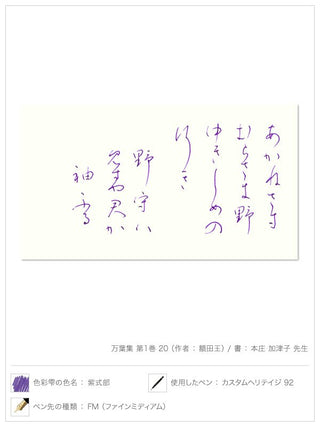 あかねさす
むらさき野
ゆきしめの
行き
野守ハ
見須や君か
袖ふる
万葉集 第1巻 20 (作者：額田王) / 書：本庄 加津子 先生
色彩雫の色名：紫式部
使用したペン：カスタムヘリテイジ 92
ペン先の種類：FM (ファインミディアム)